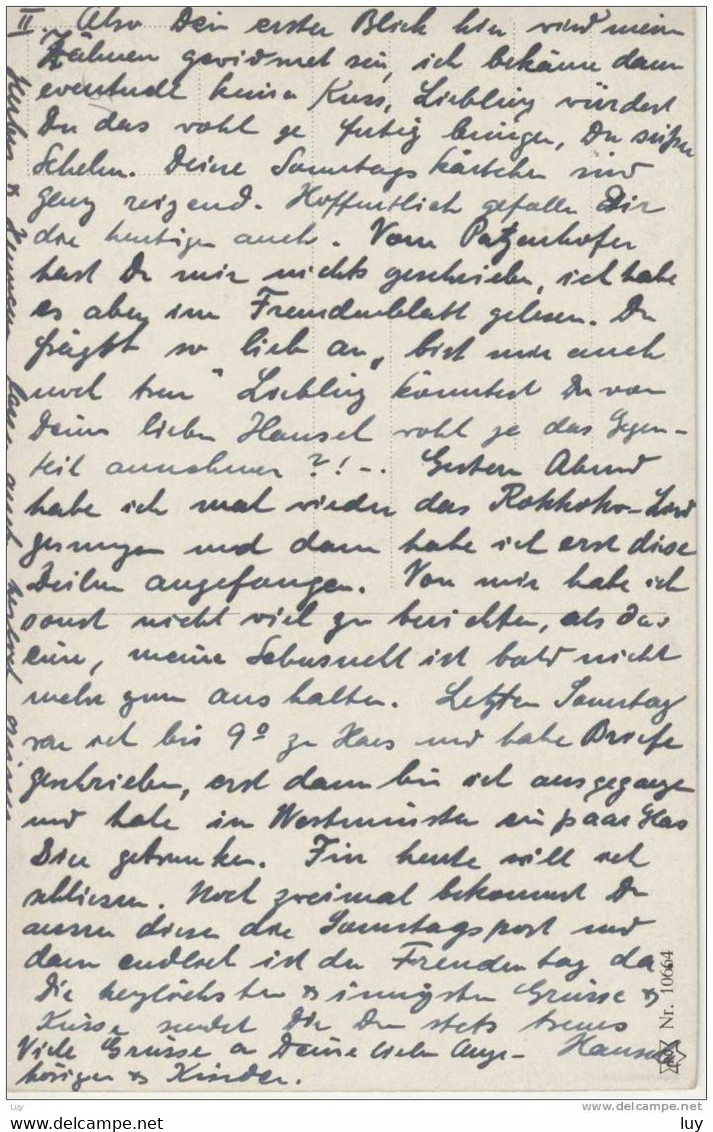 II. Also Dein erster Blick hier wird mein
Zähnen gewidmet sein, ich bekäme dann
eventuell keinen Kuss, Liebling würdest
Du das wohl je fertig bringen, Du süßer
Schelm. Deine Sonntagskärtchen sind
ganz reizend. Hoffentlich gefallen Dir
die heutigen auch. Vom Patzenhofer
hast Du mir nichts geschrieben, ich habe
es aber im Fremdenblatt gelesen. Du
frägst so lieb an, „bist mir auch
noch treu" Liebling könntest Du von
Deinem lieben Hansel wohl je das Gegen-
teil annehmen?! -. Gestern Abend
habe ich mal wieder das Rokkoko-Lied
gesungen und dann habe ich erst diese
Zeilen angefangen. Von mir habe ich
sonst nicht viel zu berichten, als das
eine, meine Sehnsucht ist bald nicht
mehr zum aushalten. Letzten Sonntag
war ich bis 9° zu Haus und habe Briefe
geschrieben, erst dann bin ich ausgegangen
und habe im Westminster ein paar Glas
Bier getrunken. Für heute will ich
schliesen. Noch zweimal bekommst Du
ausser diesen die Sonntagspost und
dann endlich ist der Freudentag da.
Die herzlichsten & innigsten Grüsse &
Küsse sendet Dir Dein stets treues
Hansel
Viele Grüsse a Deine lieben Ange-
hörigen & Kinder.
Nr. 10664
delcampe.net
luy
luy